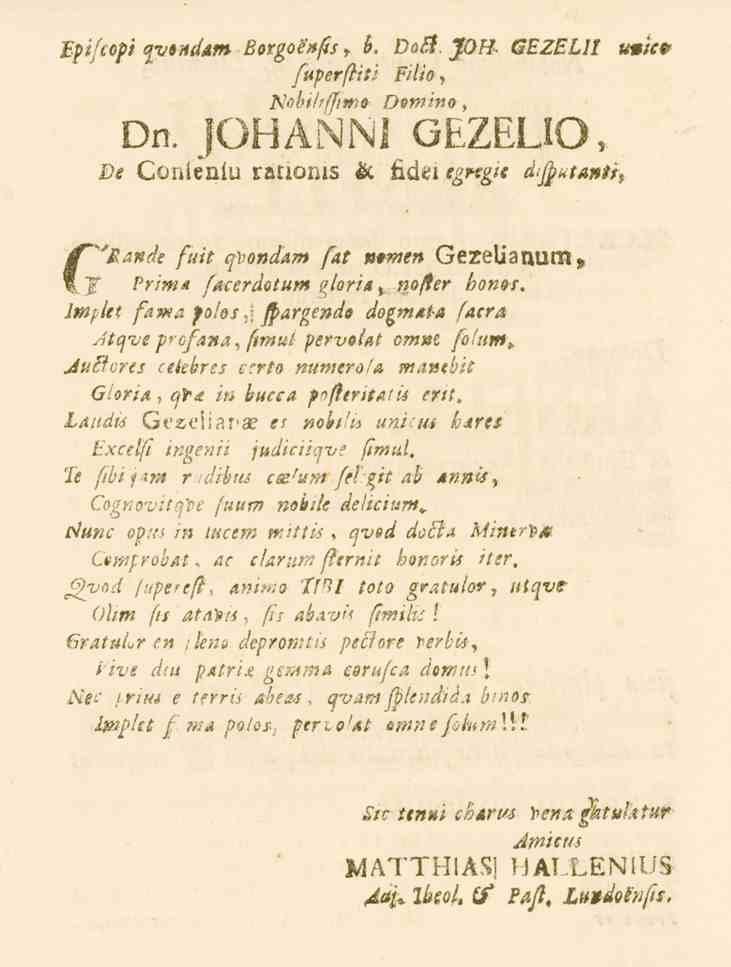 Epiſcopi qvondam Borgoënſis, b. Doct. JOH. GEZELII unico
ſuperſtiti Filio,
Nobiliſſimo Domino,
Dn. JOHANNI GEZELIO,
De Conſenſu rationis & fidei egregie diſputanti,
GRande fuit qvondam ſat nomen Gezelianum,
Prima ſacerdotum gloria, noſter honos.
Implet fama polos, ſpargendo dogmata ſacra
Atqve profana, ſimul pervolat omne ſolum.
Auctores celebres certo numeroſa manebit
Gloria, qvæ in bucca poſteritatis erit.
Laudis Gezelianæ es nobilis unicus hæres
Excelſi ingenii judiciiqve ſimul.
Te ſibi jam rudibus cœlum ſelegit ab annis,
Cognovitqve ſuum nobile delicium.
Nunc opus in lucem mittis, qvod docta Minerva
Comprobat, ac clarum ſternit honoris iter.
Qvod ſupereſt, animo TIBI toto gratulor, utqve
Olim ſis atavis, ſis abavis ſimilis!
Gratulor en pleno depromtis pectore verbis,
Vive diu patriæ gemma coruſca domus!
Nec prius e terris abeas, qvam ſplendida binos
Implet fama polos, pervolat omne ſolum!!!
Sic tenui charus vena gratulatur
Amicus
MATTHIAS HALLENIUS
Adj. Theol. & Paſt. Lundoënſis.